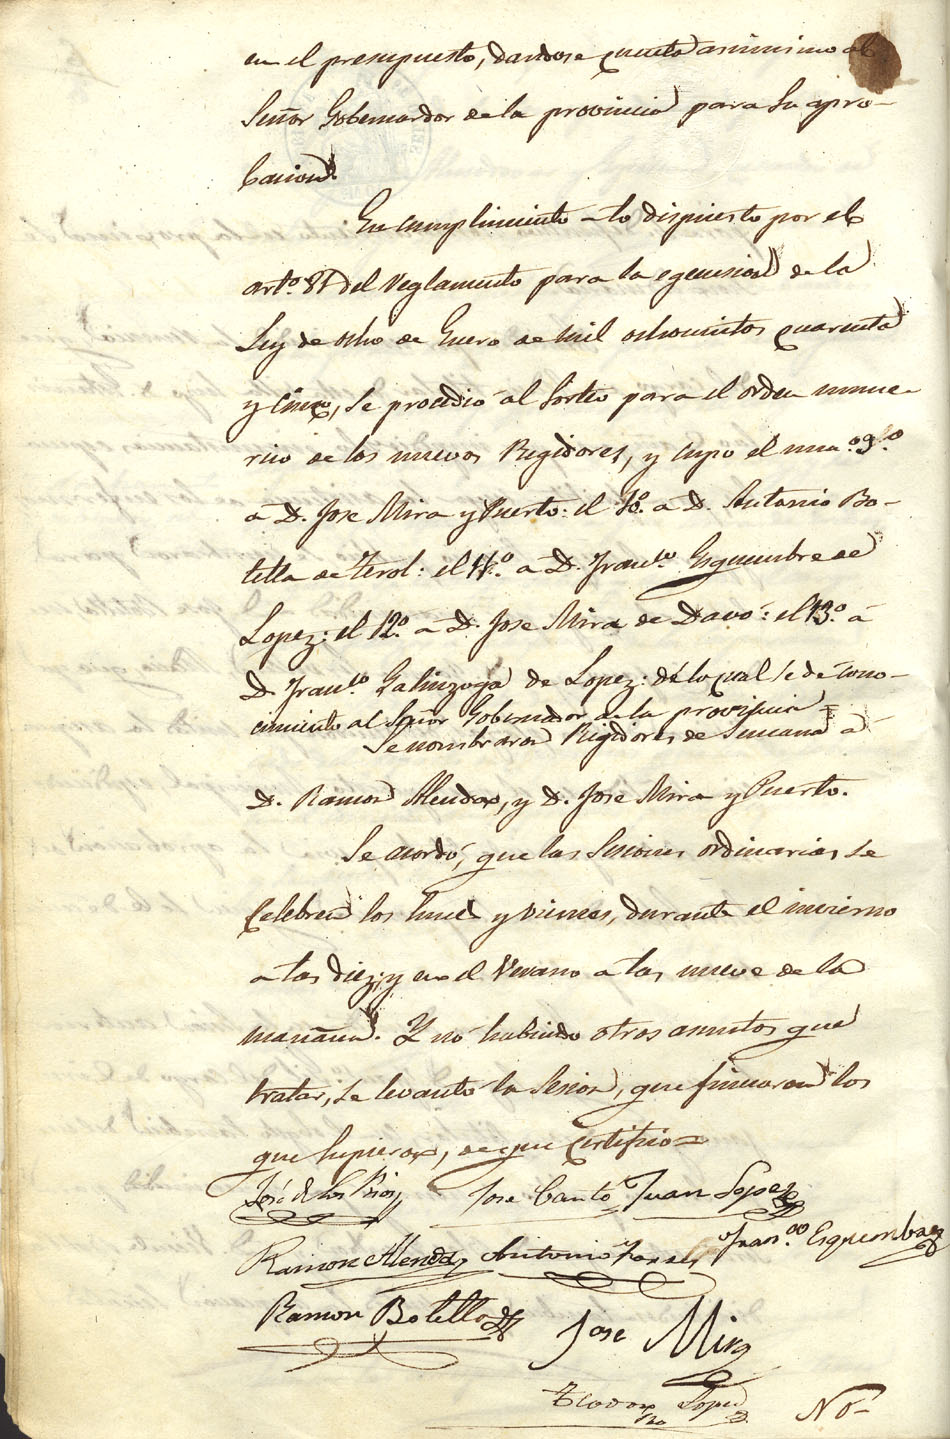 en el presupuesto, dandose cuenta asimismo al
Señor Gobernador de la provincia para su apro-
bacion.
En cumplimiento a lo dispuesto por el
artº. 81 del Reglamento para la egecucion de la
Ley de ocho de Enero de mil ochocientos cuarenta
y cinco, se procedió al sorteo para el orden nume-
rico de los nuevos Regidores, y cupo el num.º 9.º
á D. Jose Mira y Puerto: el 10.º á D. Antonio Bo-
tella de Terol: el 11.º á D. Franco. Esquembre de
Lopez: el 12.º á D. Jose Mira de Davó: el 13.º á
D. Franco. Galinzoga de Lopez: de lo qual se dé cono-
cimiento al Señor Gobernador de la provincia =
Se nombraron Regidores de Semana á
D. Ramon Alenda, y D. Jose Mira y Puerto.
Se acordó, que las Sesiones ordinarias se
Celebren los lunes y viernes, durante el invierno
a las diez, y en el Verano a las nueve de la
mañana. Y nó habiendo otros asuntos que
tratar, se levantó la Sesion, que firmaron los
que supieron, de que Certifico =
José de los Rios Jose Cantó Juan Lopez
Ramon Alenda Antonio Franco. Esquembre
Ramon Botella Jose Mira
Teodoro Lopez No-